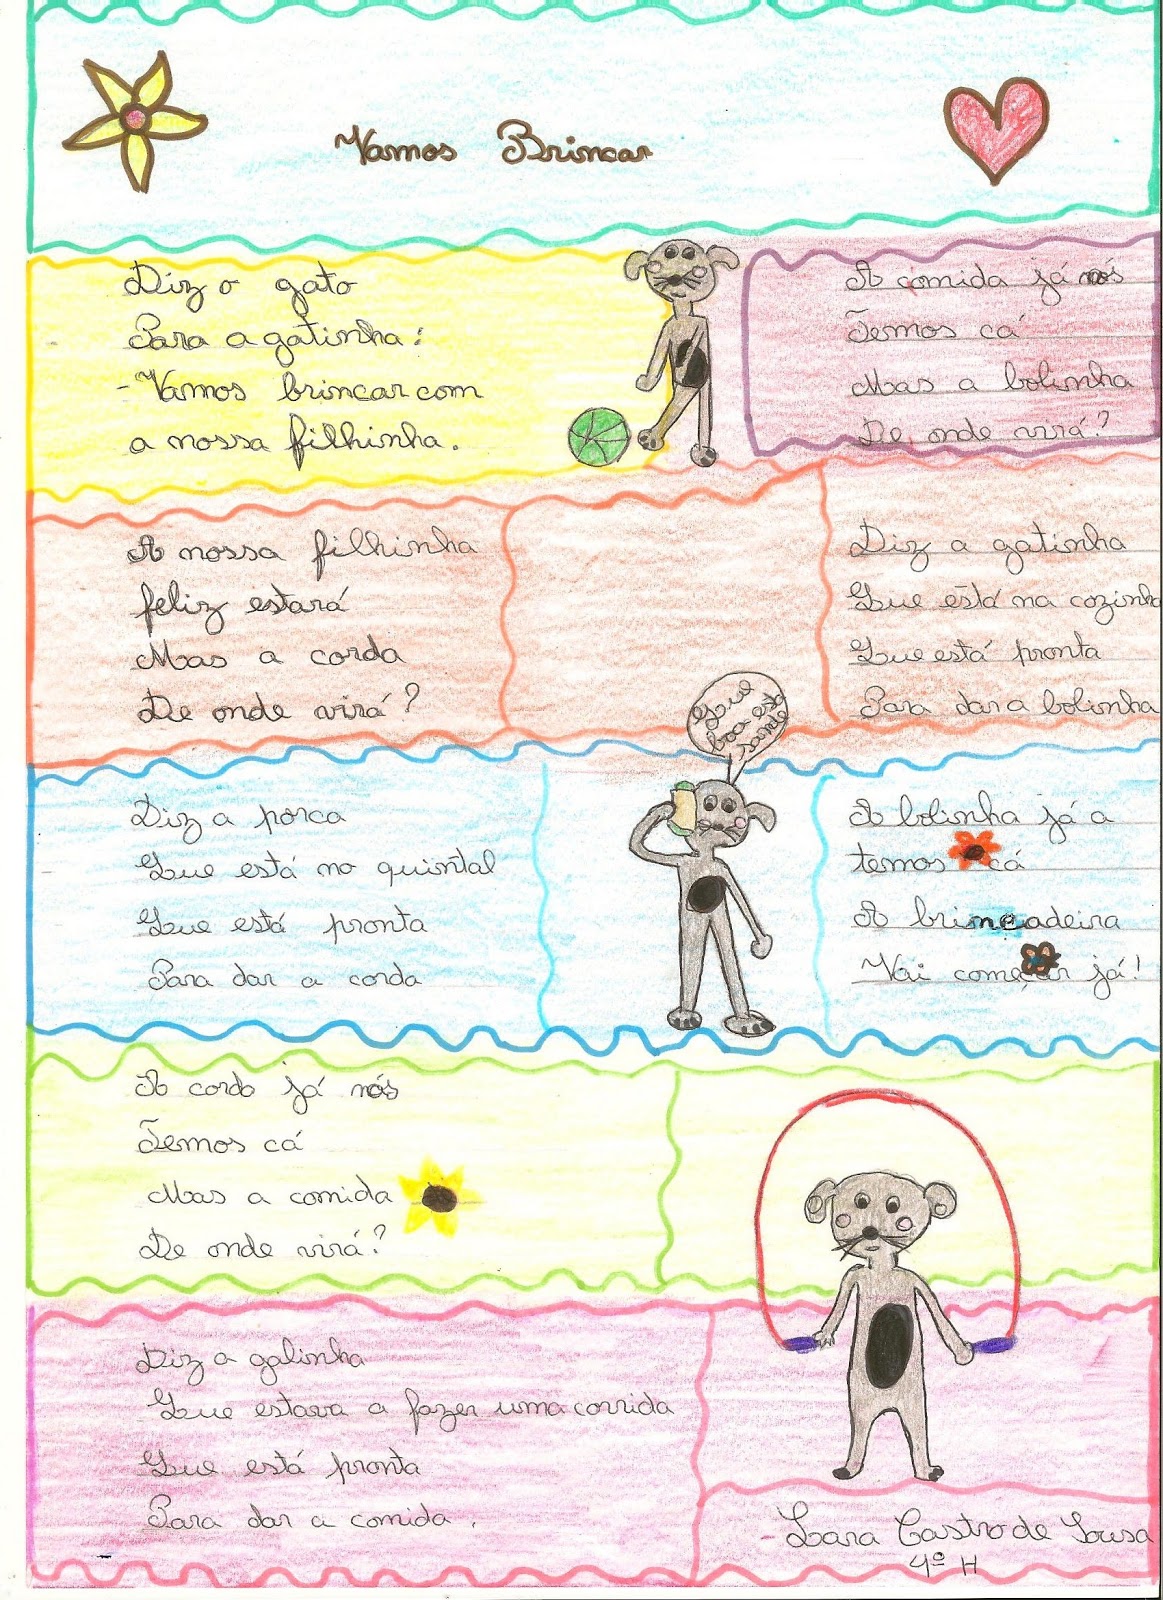 Vamos Brincar
Diz o gato
Para a gatinha:
- Vamos brincar com
a nossa filhinha.
A nossa filhinha
feliz estará
Mas a corda
De onde virá?
Diz a porca
Que está no quintal
Que está pronta
Para dar a corda
A cordo já nós
Temos cá
Mas a comida
De onde virá?
Diz a galinha
Que estava a fazer uma corrida
Que está pronta
Para dar a comida.
A comida já nós
Temos cá
Mas a bolinha
De onde virá?
Diz a gatinha
Que está na cozinha
Que está pronta
Para dar a bolinha
Que
boa esta
sumo
A bolinha já a
temos cá
A brincadeira
Vai começar já!
- Lara Castro de Sousa
4º H